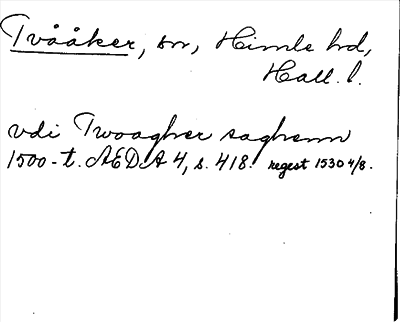 Tvååker, sn, Himle hd,
Hall. l.
vdi Twoagher saghenn
1500-t. ÆDA 4, s. 418. regest 1530 4/8.